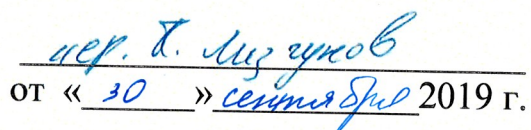 иер. П. Лизгунов
от «30» сентября 2019 г.